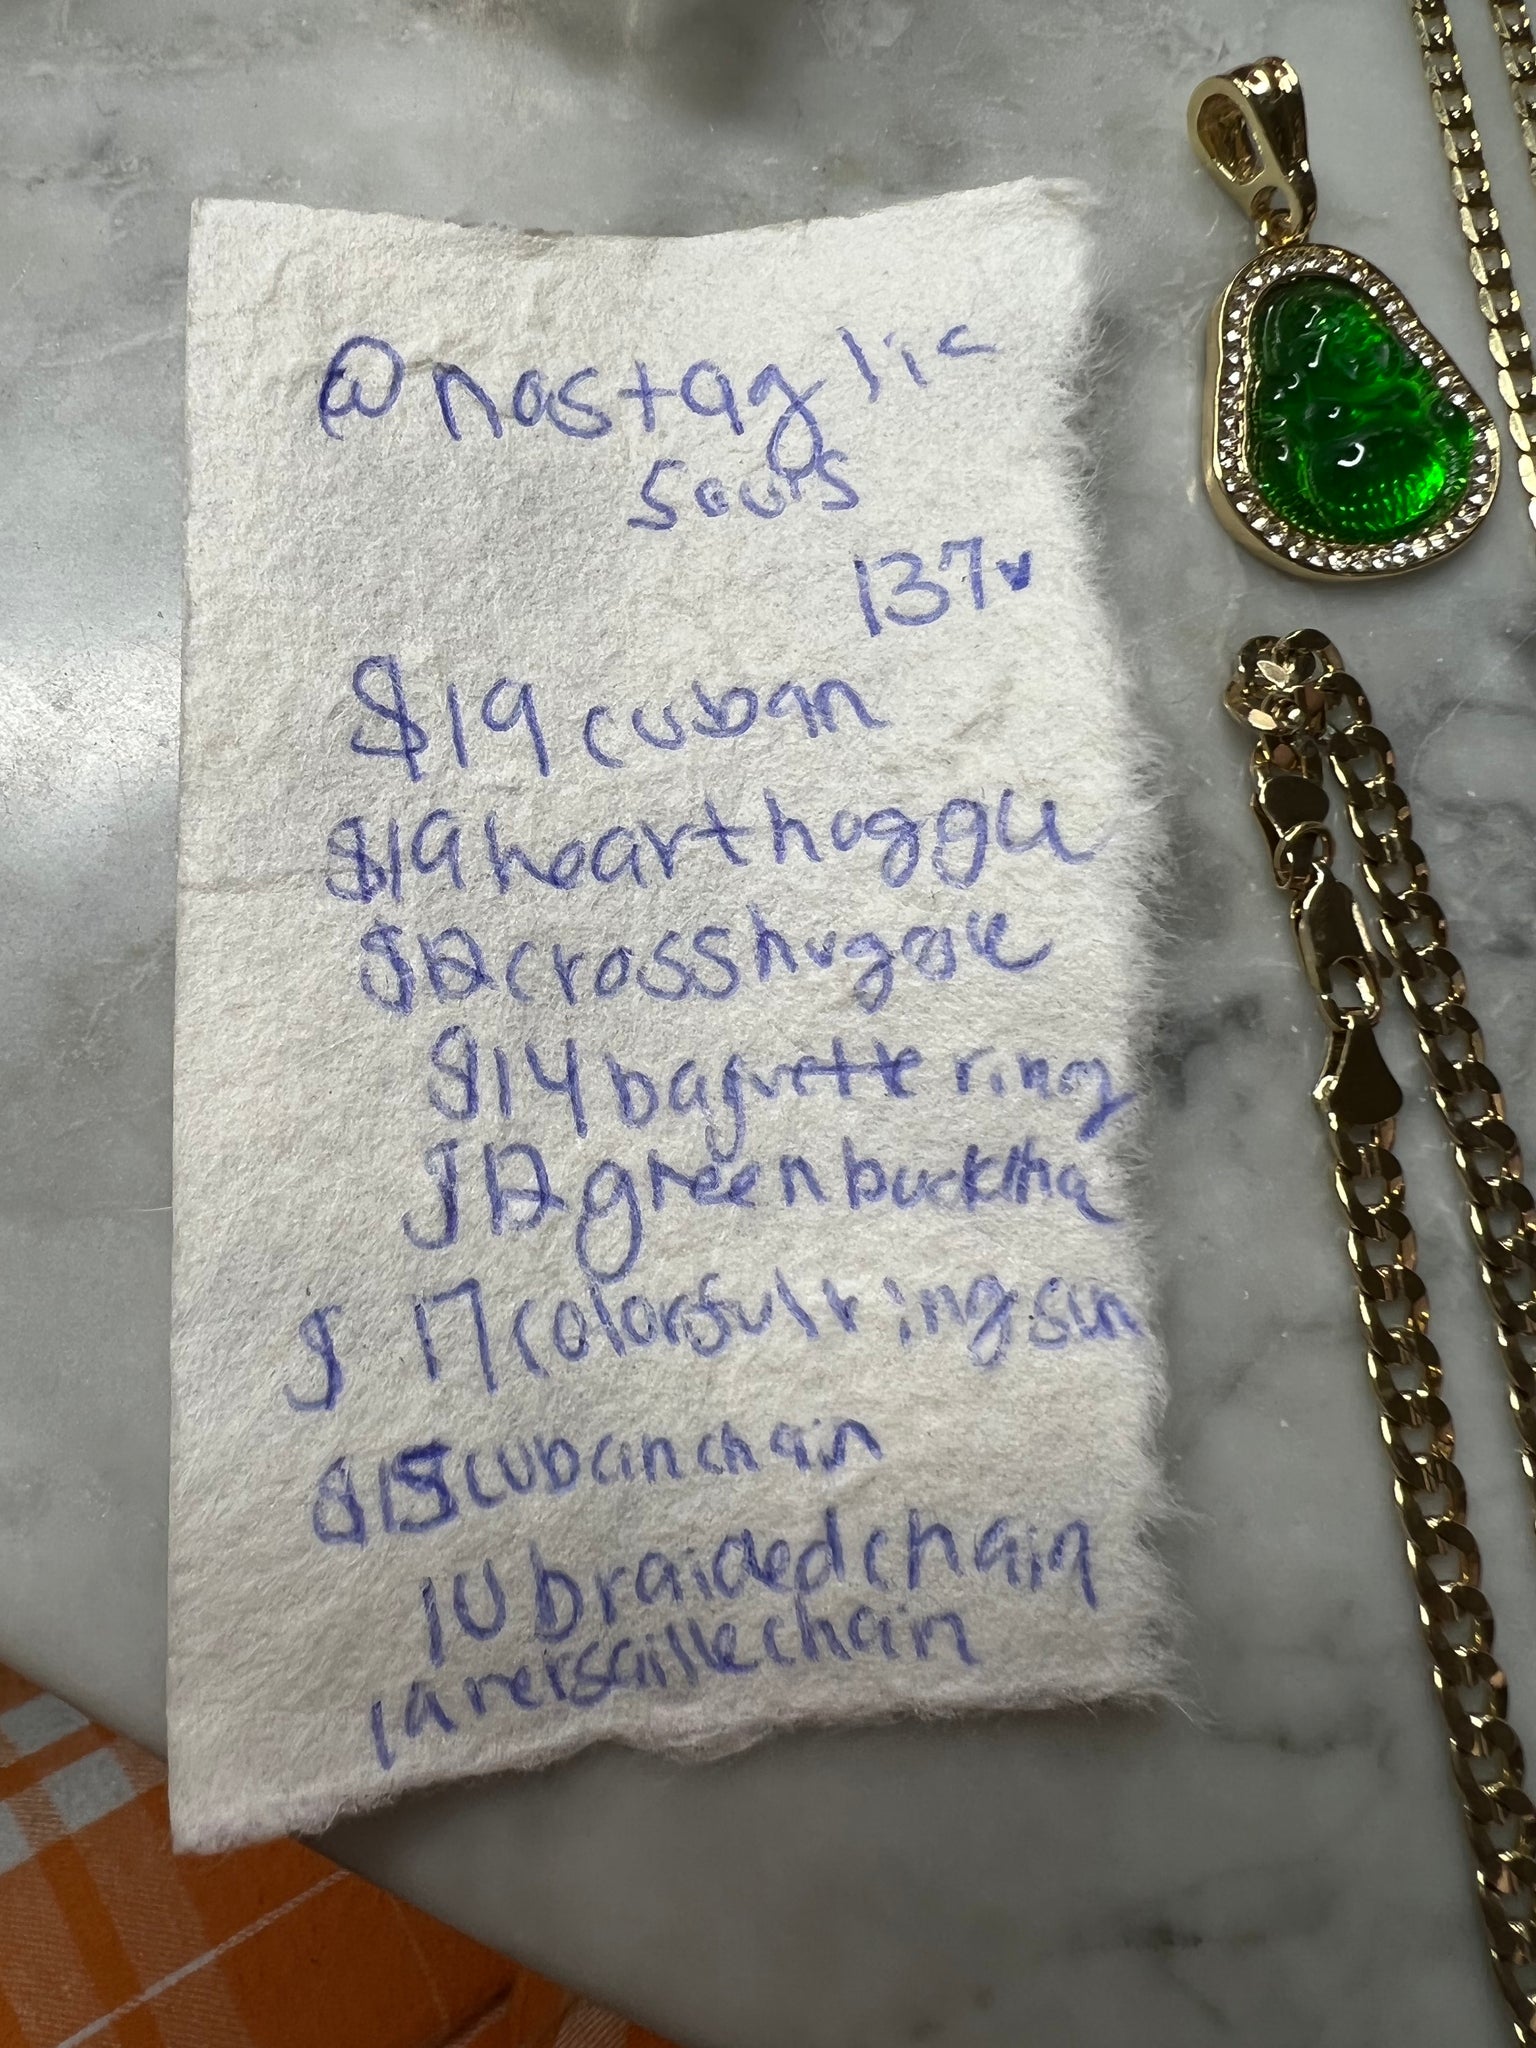 @nostaglic
souls
137
$19 cuban
$19 heart hoggie
$12 cross huggie
$14 baguette ring
$12 green bucktha
$17 colorful ring sun
$15 cuban chain
10 braided chain
19 versaille chain